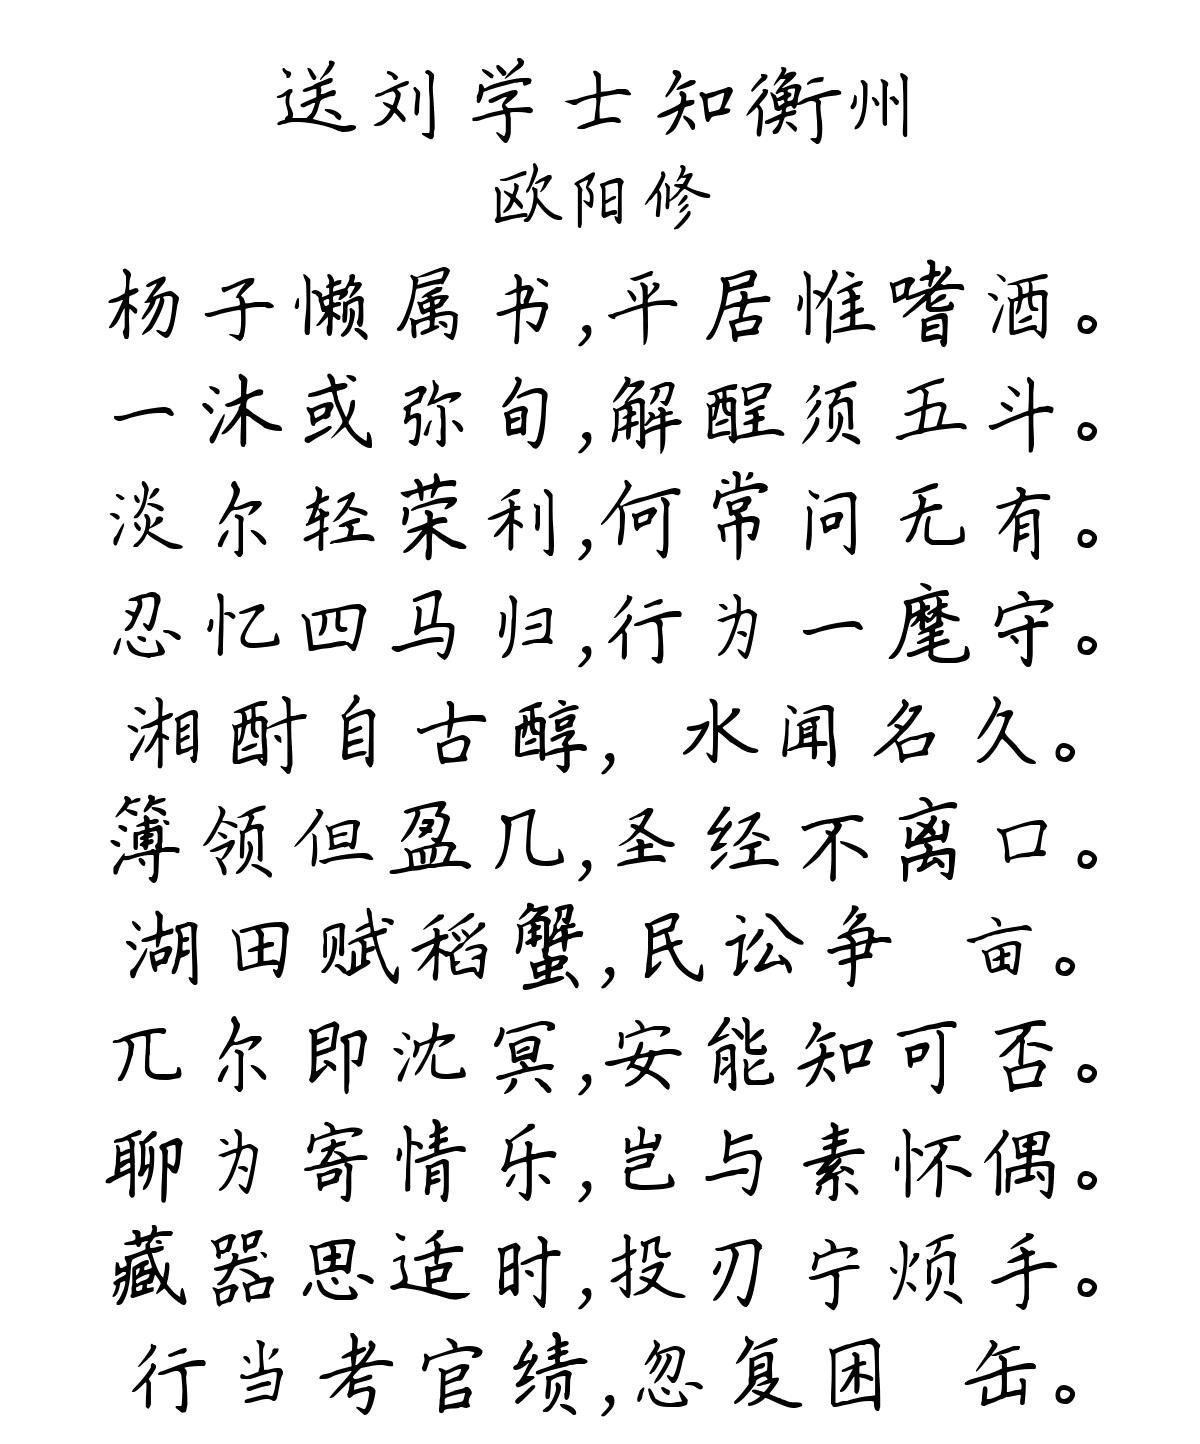 送刘学士知衡州
欧阳修
杨子懒属书,平居惟嗜酒。
一沐或弥旬,解酲须五斗。
淡尔轻荣利,何常问无有。
忍忆四马归,行为一麾守。
湘酎自古醇,水闻名久。
簿领但盈几,圣经不离口。
湖田赋稻蟹,民讼争 亩。
兀尔即沈冥,安能知可否。
聊为寄情乐,岂与素怀偶。
藏器思适时,投刃宁烦手。
行当考官绩,忽复困 缶。